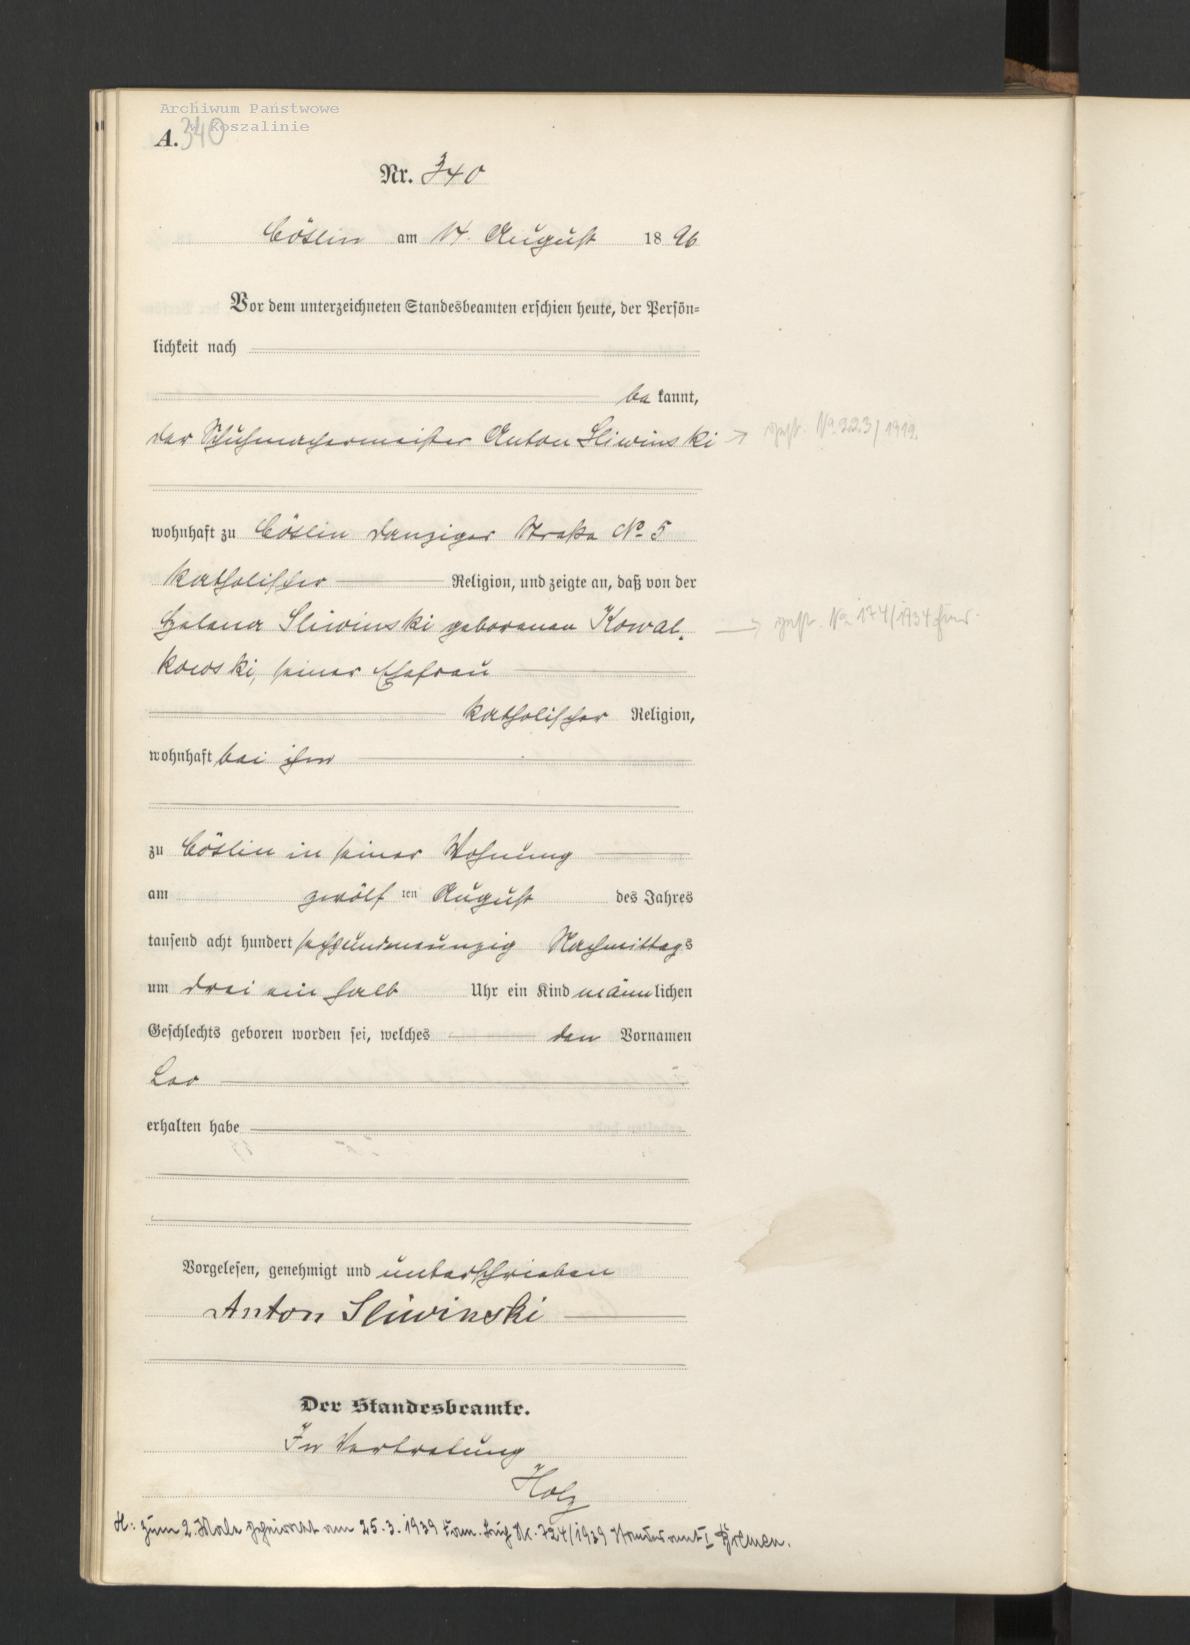 Archiwum Państwowe
w Koszalinie
A. 340
Nr. 340
Cöslin am 14. August 1896
Vor dem unterzeichneten Standesbeamten erschien heute, der Persön=
lichkeit nach
be kannt,
der Schuhmachermeister Anton Sliwinski → gest. No 323/1919.
wohnhaft zu Cöslin Danziger Straße No 5
katholischer Religion, und zeigte an, daß von der
Helena Sliwinski geborenen Kowal, → gest. No 174/1934
kowski, seiner Ehefrau
katholischer Religion,
wohnhaft bei ihm
zu Cöslin in seiner Wohnung
am zwölf ten August des Jahres
tausend acht hundert sechsundneunzig Nachmittags
um drei ein halb Uhr ein Kind männlichen
Geschlechts geboren worden sei, welches den Vornamen
Leo
erhalten habe
Vorgelesen, genehmigt und unterschrieben
Anton Sliwinski
Der Standesbeamte.
In Vertretung
Holz
H: zum 2. Male geheiratet am 25.3.1939 Fam. Nr. 724/1939 Standesamt I Bremen.